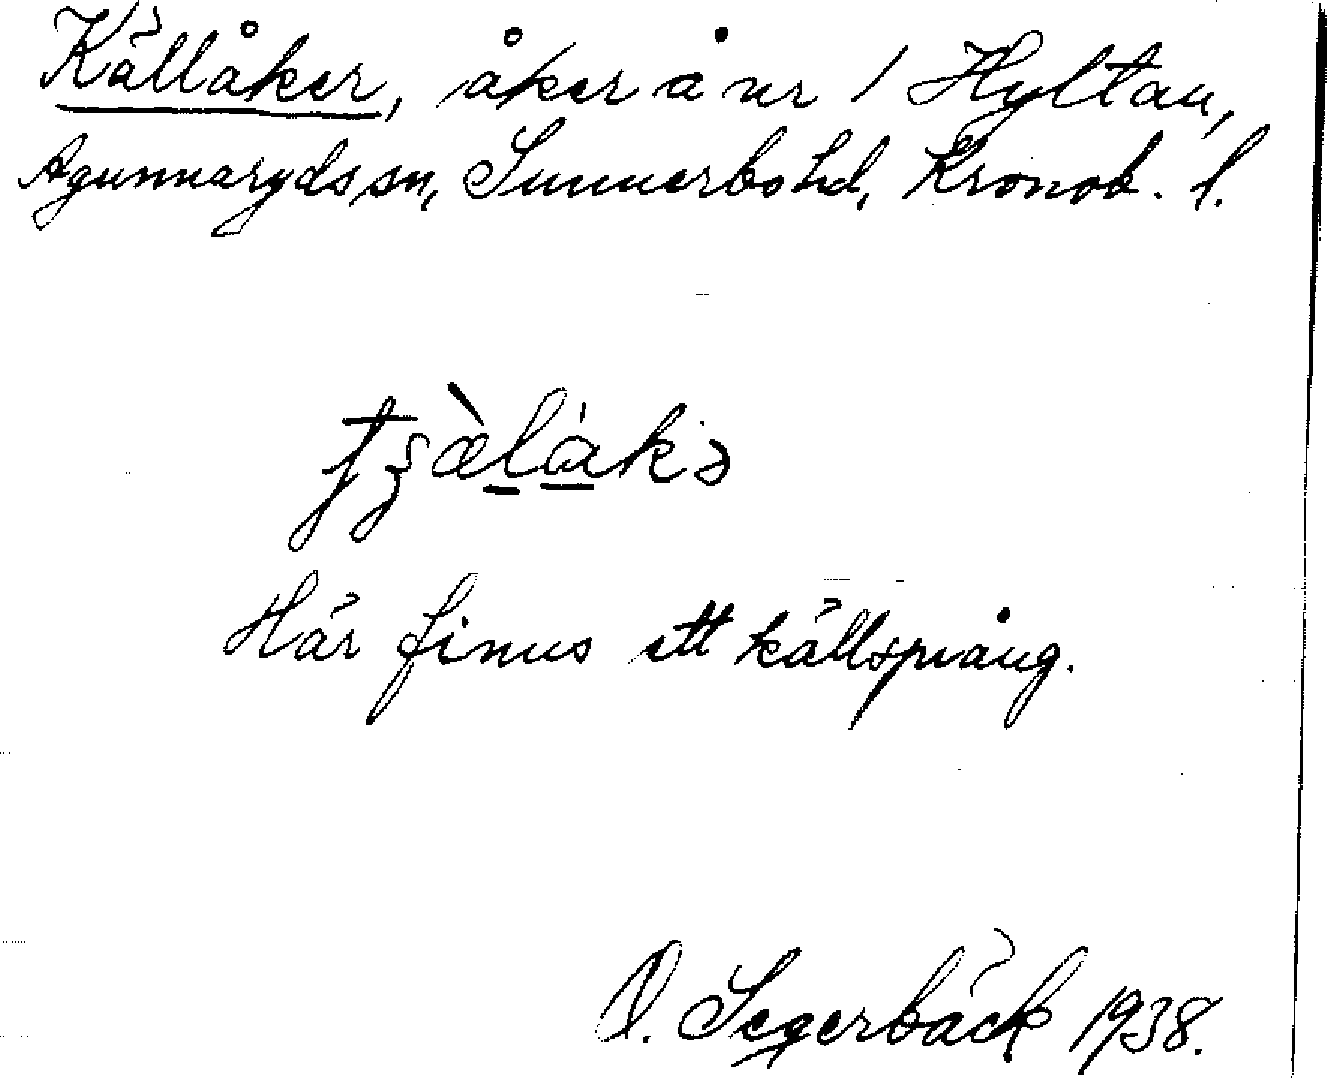 Källåker, åker å nr 1 Hyltan,
Agunnaryds sn, Sunnerbo hd, Kronob. l.
Här finns ett källsprång.
O. Segerbäck 1938.